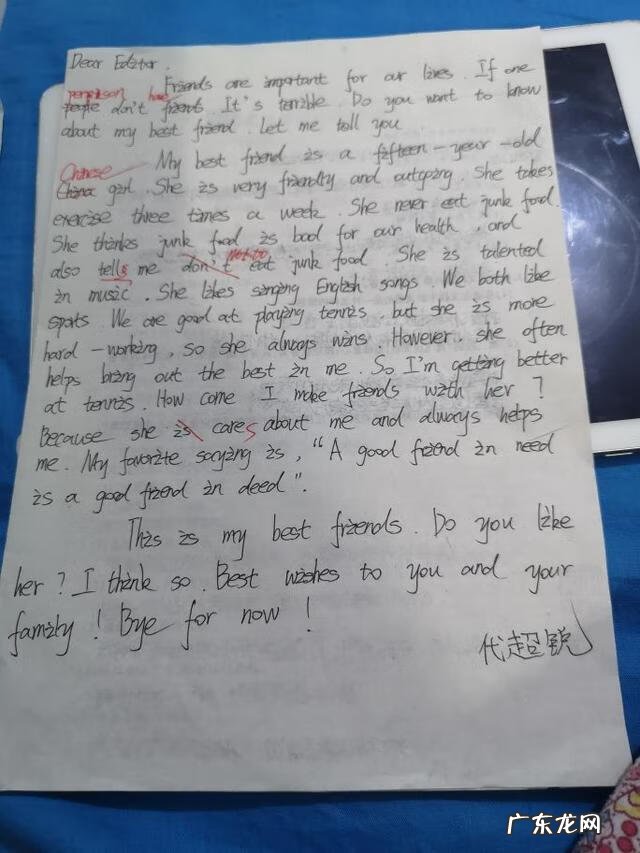 Dear Editor.
Friends are important for our lives. If one
person have
people don't friends. It's terrible. Do you want to know
about my best friend. Let me tell you
My best friend is a fifteen-year-old
Chinese
China girl. She is very friendly and outgoing. She takes
exercise three times a week. She never eat junk food.
She thinks junk food is bad for our health, and
not to
also tells me don't eat junk food. She is talented
in music. She likes singing English songs. We both like
sports. We are good at playing tennis, but she is more
hard-working, so she always wins. However, she often
helps bring out the best in me. So I'm getting better
at tennis. How come I make friends with her?
Because she is cares about me and always helps
me. My favorite saying is, "A good friend in need
is a good friend in deed".
This is my best friends. Do you like
her? I think so. Best wishes to you and your
family! Bye for now!
代超锐
广东龙网